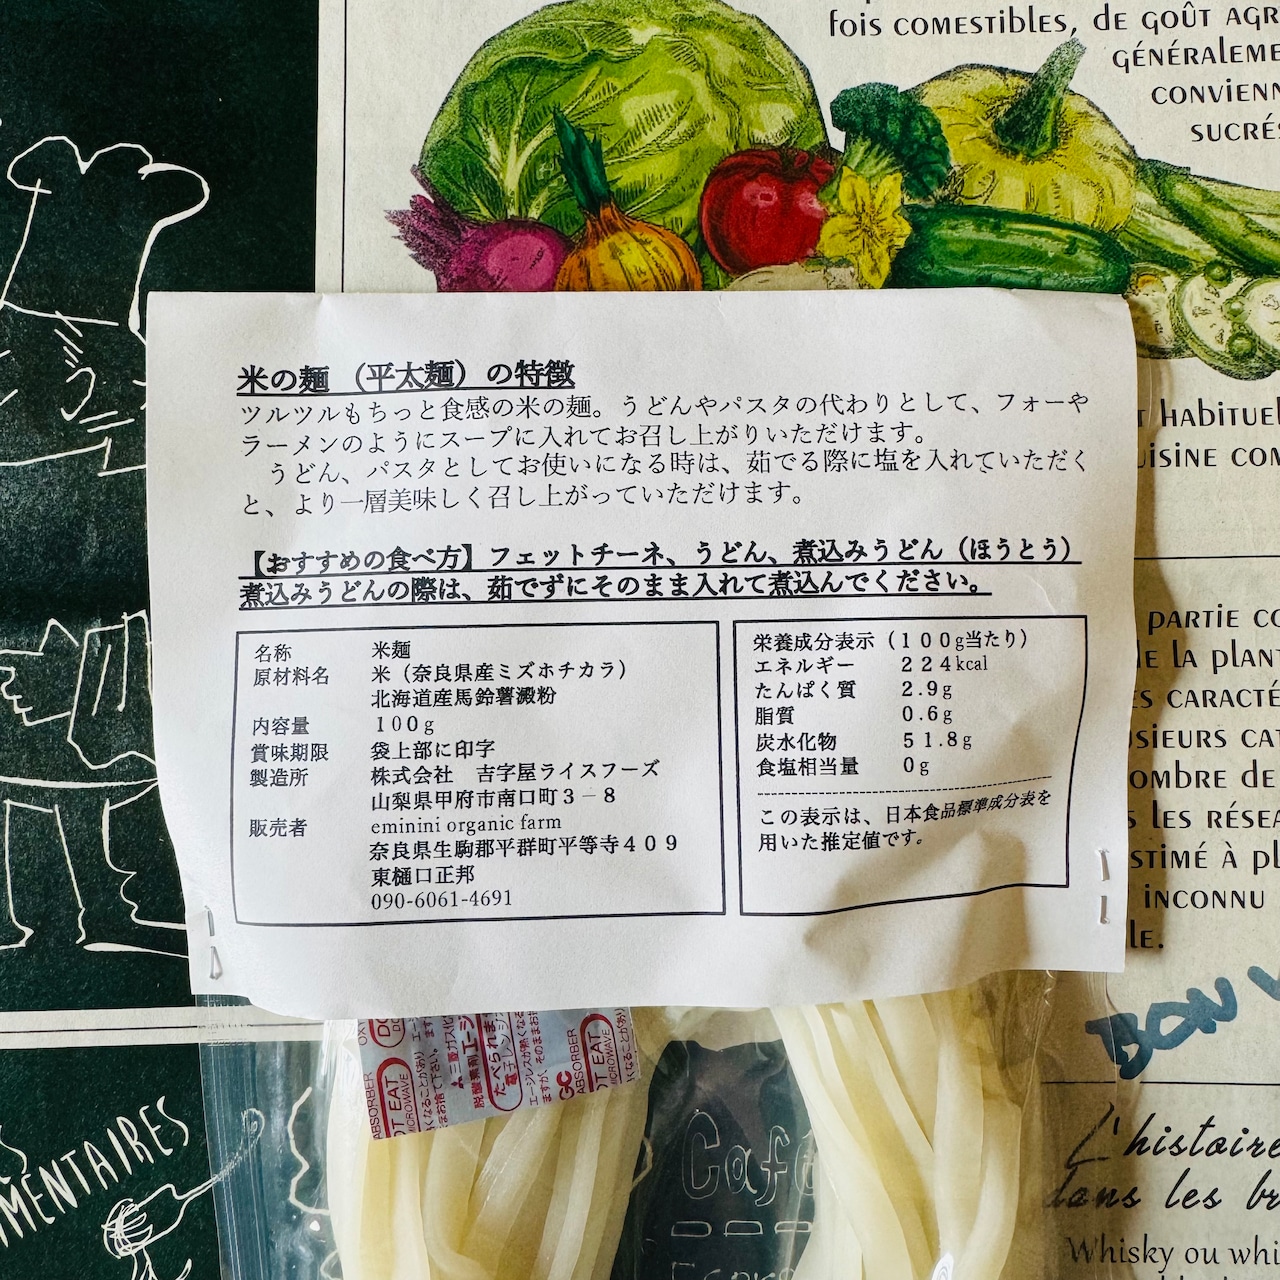 fois comestibles, de goût agr
généraleme
convienn
sucrés
米の麺（平太麺）の特徴
ツルツルもちっと食感の米の麺。うどんやパスタの代わりとして、フォーや
ラーメンのようにスープに入れてお召し上がりいただけます。
うどん、パスタとしてお使いになる時は、茹でる際に塩を入れていただく
と、より一層美味しく召し上がっていただけます。
【おすすめの食べ方】フェットチーネ、うどん、煮込みうどん（ほうとう）
煮込みうどんの際は、茹でずにそのまま入れて煮込んでください。
名称 米麺
原材料名 米（奈良県産ミズホチカラ）
北海道産馬鈴薯澱粉
内容量 100g
賞味期限 袋上部に印字
製造所 株式会社 吉字屋ライスフーズ
山梨県甲府市南口町3－8
販売者 eminini organic farm
奈良県生駒郡平群町平等寺409
東樋口正邦
090-6061-4691
栄養成分表示（100g当たり）
エネルギー 224kcal
たんぱく質 2.9g
脂質 0.6g
炭水化物 51.8g
食塩相当量 0g
この表示は、日本食品標準成分表を
用いた推定値です。
t habituel
uisine com
partie co
de la plant
es caracté
usieurs cat
ombre de
s les résea
stimé à pl
inconnu
le.
BON
L'histoire
dans les br
Whisky ou whi
MENTAIRES
ABSORBER
OT EAT
MICROWAVE
脱酸素剤 エージ
たべられま
電子レンジ
GC
ABSORBER
OT EAT
MICROWAVE
Café